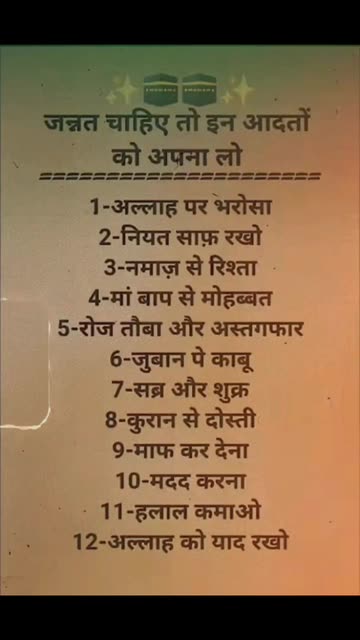 ✨🕋🕋✨
जन्नत चाहिए तो इन आदतों
को अपना लो
=====================
1-अल्लाह पर भरोसा
2-नियत साफ़ रखो
3-नमाज़ से रिश्ता
4-मां बाप से मोहब्बत
5-रोज तौबा और अस्तगफार
6-जुबान पे काबू
7-सब्र और शुक्र
8-कुरान से दोस्ती
9-माफ कर देना
10-मदद करना
11-हलाल कमाओ
12-अल्लाह को याद रखो